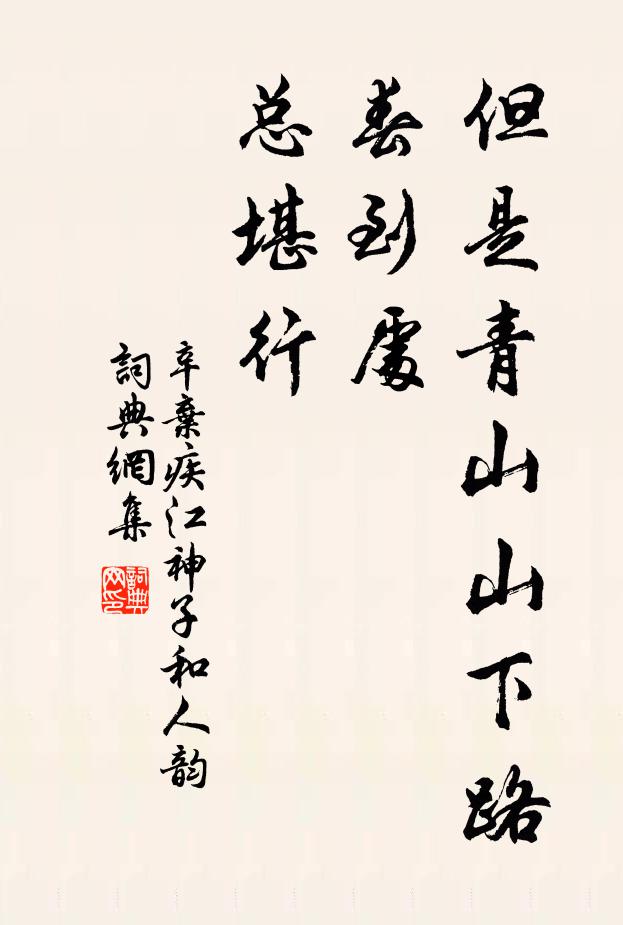 但是青山山下路
春到處
总堪行
辛棄疾江神子和人韵
詞典網集
詞典
网印